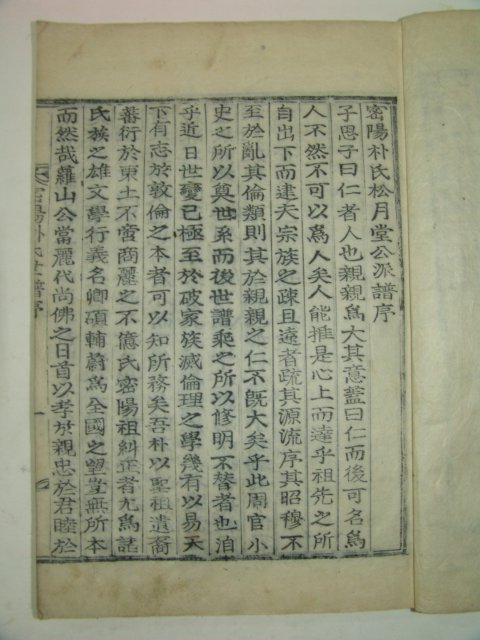 密陽朴氏松月堂公派譜序
子思子曰仁者人也親親爲大其意蓋曰仁而後可名爲
人不然不可以爲人矣人能推是心上而達乎祖先之所
自出下而逮夫宗族之疎且遠者疏其源流序其昭穆不
至於亂其倫類則其於親親之仁不旣大矣乎此周官小
史之所以奠世系而後世譜乘之所以修明不替者也洎
乎近日世變已極至於破家族滅倫理之學幾有以易天
下有志於敦倫之本者可以知所務矣吾朴以聖祖遺裔
蕃衍於東土不啻商麗之不億氏密陽祖糾正者尤爲諸
氏族之雄文學行義名卿碩輔蔚爲全國之望豈無所本
而然哉羅山公當麗代尚佛之日首以孝於親忠於君睦於
密陽朴氏世譜序